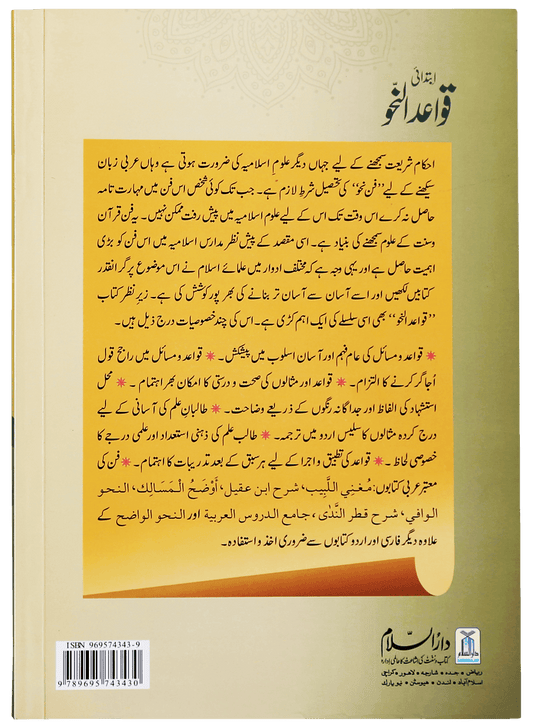 ابتدائی
قواعد النحو
احکام شریعت سمجھنے کے لیے جہاں دیگر علوم اسلامیہ کی ضرورت ہوتی ہے وہاں عربی زبان
سیکھنے کے لیے ’’فن نحو‘‘ کی تحصیل شرطِ لازم ہے۔ جب تک کوئی شخص اس فن میں مہارت تامہ
حاصل نہ کرے اس وقت تک اس کے لیے علوم اسلامیہ میں پیش رفت ممکن نہیں۔ یہ فن قرآن
وسنت کے علوم سمجھنے کی بنیاد ہے۔ اسی مقصد کے پیش نظر مدارس اسلامیہ میں اس فن کو بڑی
اہمیت حاصل ہے اور یہی وجہ ہے کہ مختلف ادوار میں علمائے اسلام نے اس موضوع پر گرانقدر
کتابیں لکھیں اور اسے آسان سے آسان تر بنانے کی بھر پور کوشش کی ہے۔ زیر نظر کتاب
’’قواعد النحو‘‘ بھی اسی سلسلے کی ایک اہم کڑی ہے۔ اس کی چند خصوصیات درج ذیل ہیں۔
✷ قواعد و مسائل کی عام فہم اور آسان اسلوب میں پیشکش۔ ✷ قواعد و مسائل میں راجح قول
اُجاگر کرنے کا التزام۔ ✷ قواعد اور مثالوں کی صحت و درستی کا امکان بھر اہتمام۔ ✷ محل
استشہاد کی الفاظ اور جداگانہ رنگوں کے ذریعے وضاحت۔ ✷ طالبانِ علم کی آسانی کے لیے
درج کردہ مثالوں کا سلیس اردو میں ترجمہ۔ ✷ طالب علم کی ذہنی استعداد اور علمی درجے کا
خصوصی لحاظ۔ ✷ قواعد کی تطبیق و اجرا کے لیے ہر سبق کے بعد تدریبات کا اہتمام۔ ✷ فن کی
معتبر عربی کتابوں: مُغني اللَّبيب، شرح ابن عقيل، أَوْضَحُ الْمَسالِك، النحو
الوافي، شرح قطر النَّدٰى، جامع الدروس العربية اور النحو الواضح کے
علاوہ دیگر فارسی اور اردو کتابوں سے ضروری اخذ و استفادہ۔
ISBN 969574343-9
9 789695 743430
دارالسلام
کتاب و سنت کی اشاعت کا عالمی ادارہ
ریاض • جدہ • شارجہ • لاہور • کراچی
اسلام آباد • لندن • ہیوسٹن • نیو یارک